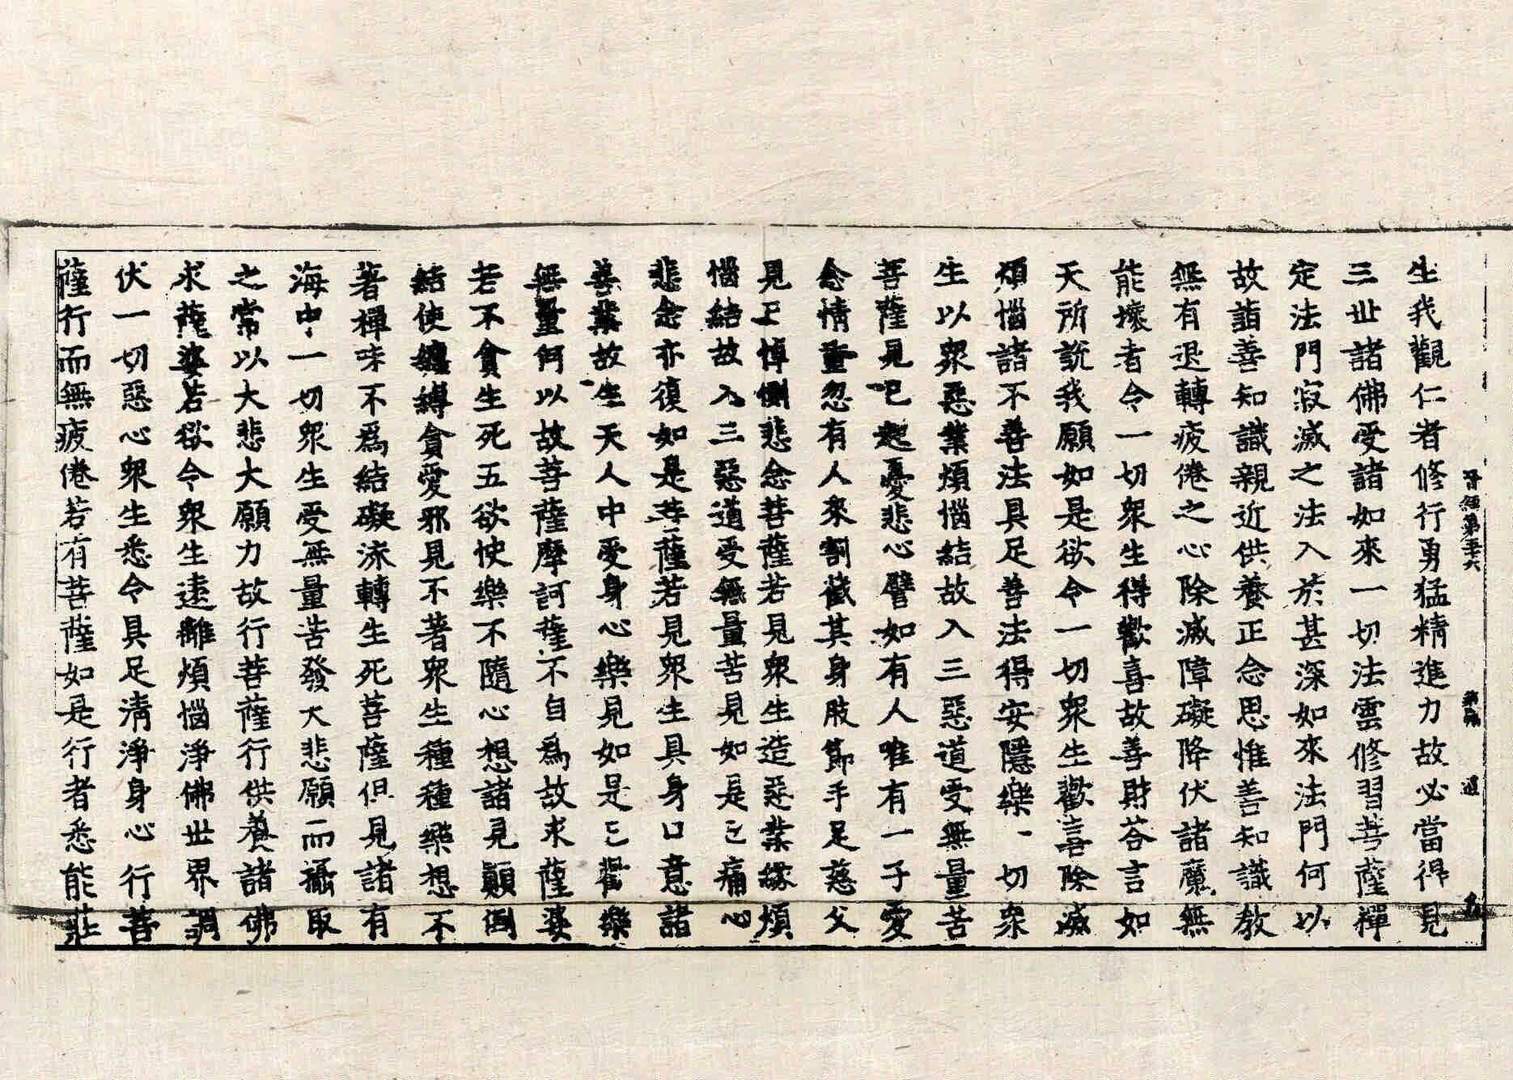 生我觀仁者修行勇猛精進力故必當得見
三世諸佛受諸如來一切法雲修習菩薩禪
定法門寂滅之法入於甚深如來法門何以
故詣善知識親近供養正念思惟善知識教
無有退轉疲倦之心除滅障礙降伏諸魔無
能壞者令一切衆生得歡喜故善財荅言如
天所說我願如是欲令一切衆生歡喜除滅
煩惱諸不善法具足善法得安隱樂一切衆
生以衆惡業煩惱結故入三惡道受無量苦
菩薩見已起憂悲心譬如有人唯有一子愛
念情重忽有人來割截其身肢節手足慈父
見之悼惻悲念菩薩若見衆生造惡業緣煩
惱結故入三惡道受無量苦見如是已痛心
悲念亦復如是菩薩若見衆生具身口意諸
善業故生天人中愛身心樂見如是已歡樂
無量何以故菩薩摩訶薩不自爲故求薩婆
若不貪生死五欲快樂不隨心想諸見顚倒
結使纏縛貪愛邪見不著衆生種種樂想不
著禪味不爲結礙流轉生死菩薩但見諸有
海中一切衆生受無量苦發大悲願而攝取
之常以大悲大願力故行菩薩行供養諸佛
求薩婆若欲令衆生遠離煩惱淨佛世界調
伏一切惡心衆生悉令具足淸淨身心行菩
薩行而無疲倦若有菩薩如是行者悉能莊